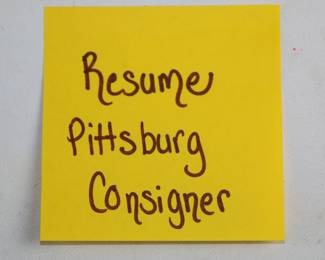 Resume
Pittsburg
Consigner